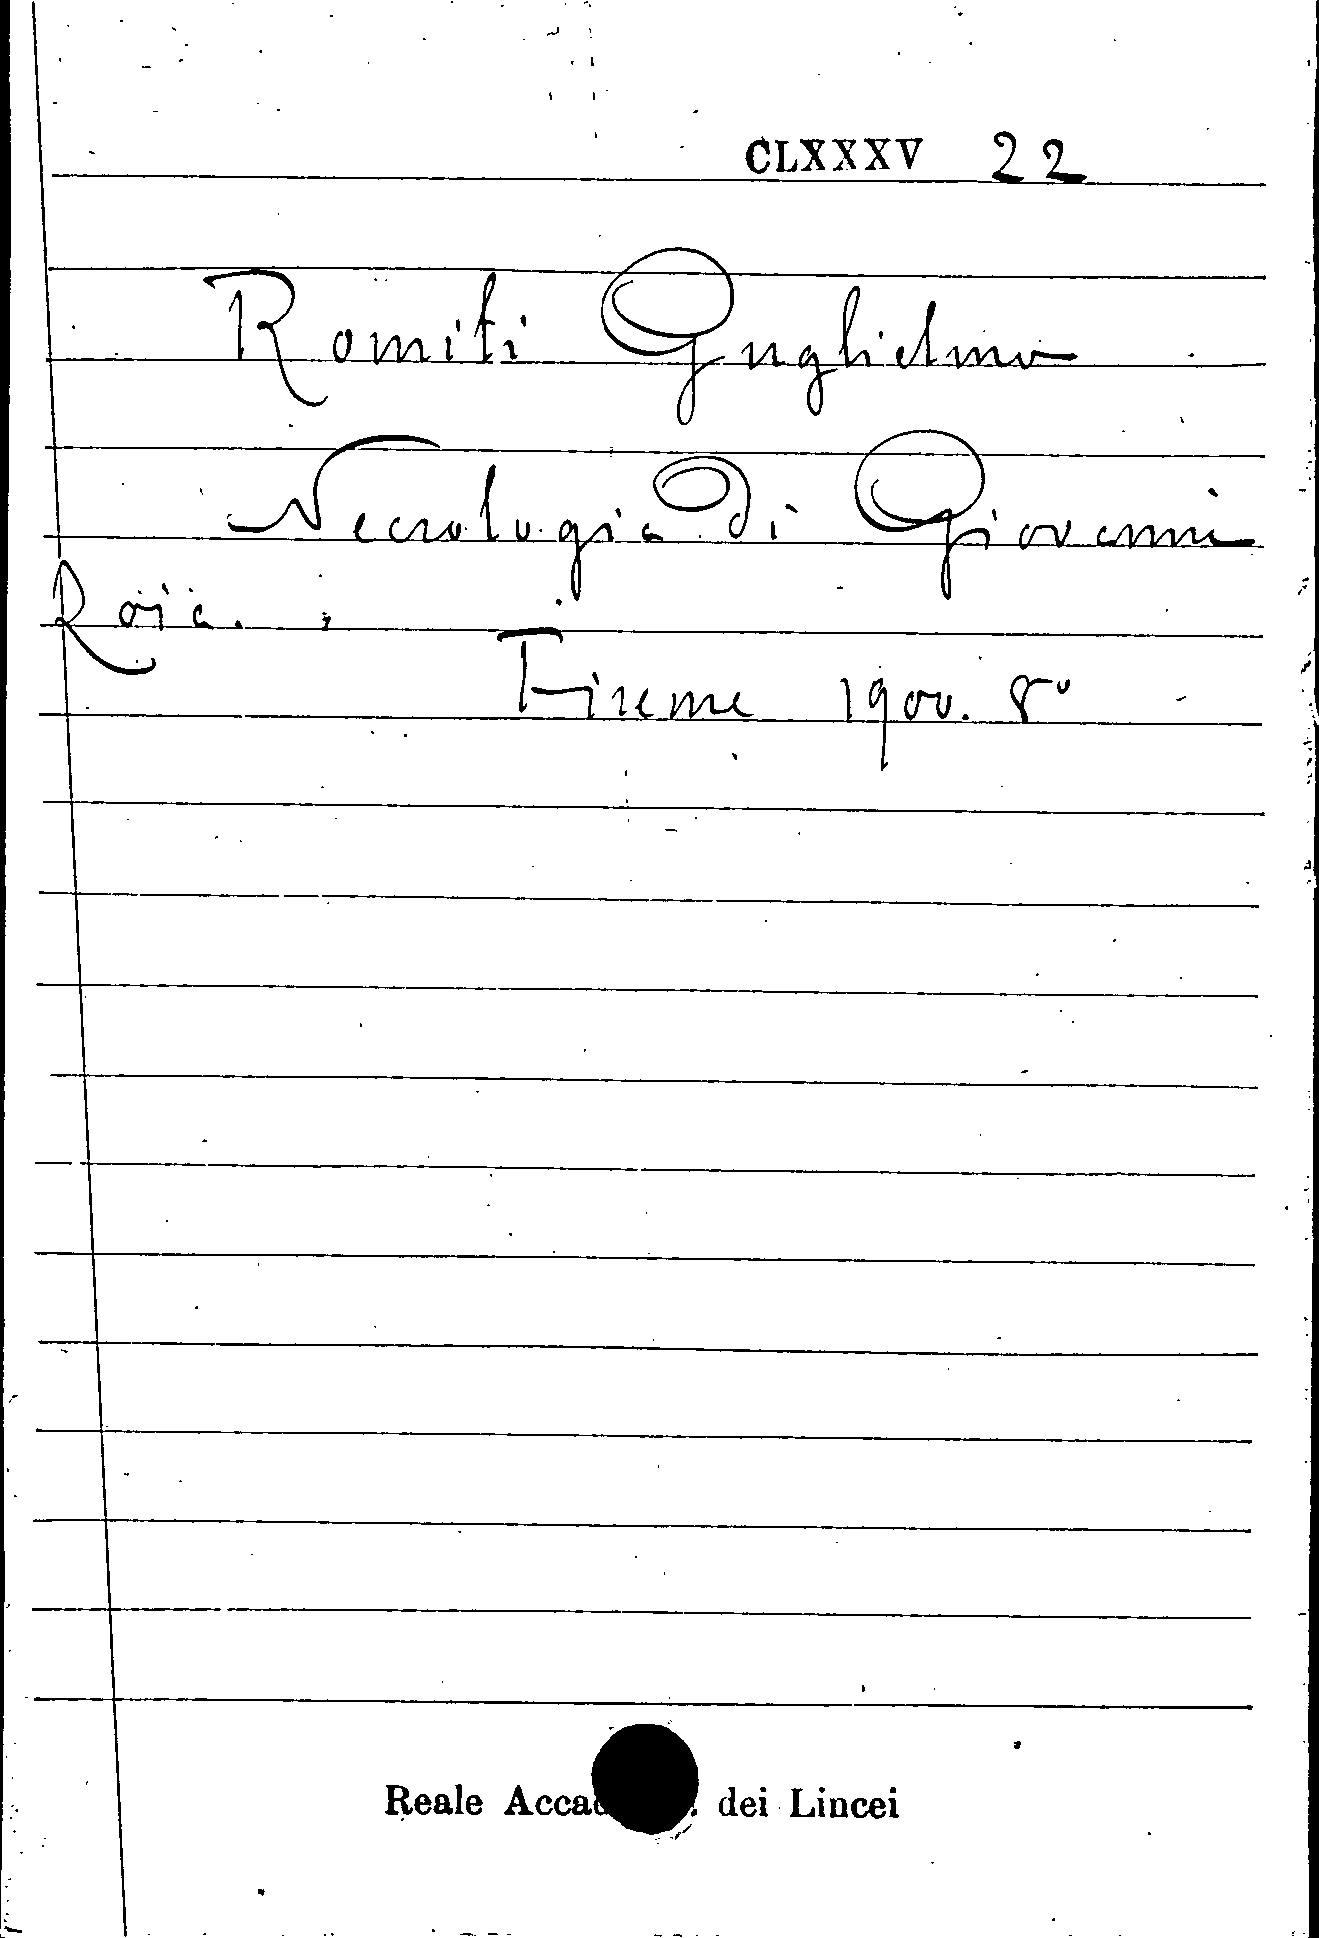 CLXXXV 22
Romiti Guglielmo
Necrologia di Giovanni
Roia.
Firenze 1900. 8º
Reale Accad dei Lincei